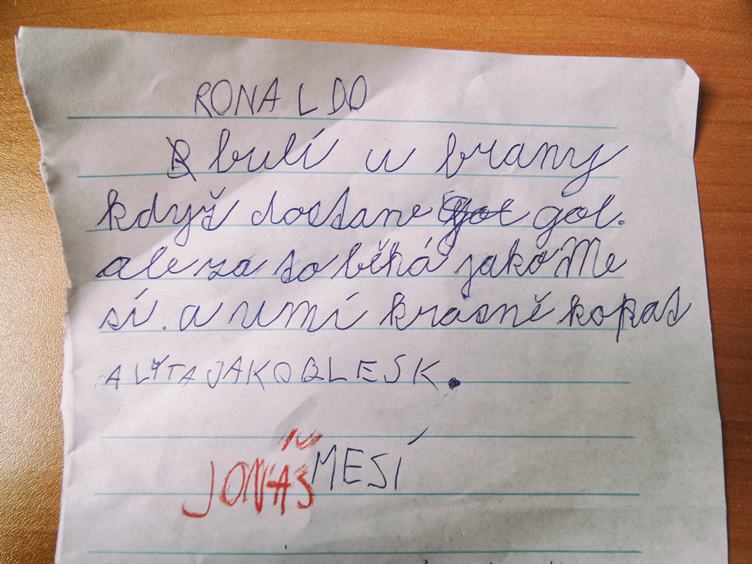 RONALDO
bulí u brany
když dostane gol.
ale za to běhá jako Me
sí. a umí krásně kopat
A LÝTA JAKO BLESK.
JONÁŠ MESÍ